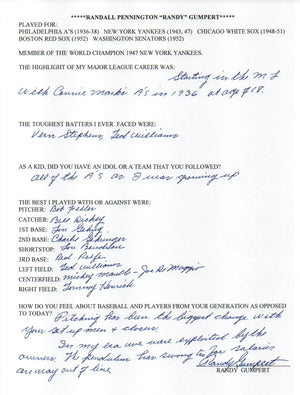 *****RANDALL PENNINGTON "RANDY" GUMPERT*****
PLAYED FOR:
PHILADELPHIA A'S (1936-38) NEW YORK YANKEES (1943, 47) CHICAGO WHITE SOX (1948-51)
BOSTON RED SOX (1952) WASHINGTON SENATORS (1952)
MEMBER OF THE WORLD CHAMPION 1947 NEW YORK YANKEES.
THE HIGHLIGHT OF MY MAJOR LEAGUE CAREER WAS:
Starting in the M L
With Connie Mack's A'S in 1936 at age of 18.
THE TOUGHEST BATTERS I EVER FACED WERE:
Vern Stephens, Ted Williams
AS A KID, DID YOU HAVE AN IDOL OR A TEAM THAT YOU FOLLOWED?
All of the A'S as I was growing up
THE BEST I PLAYED WITH OR AGAINST WERE:
PITCHER: Bob Feller
CATCHER: Bill Dickey
1ST BASE: Lou Gehrig
2ND BASE: Charlie Gehringer
SHORTSTOP: Lou Boudreau
3RD BASE: Red Rolfe
LEFT FIELD: Ted Williams
CENTERFIELD: Mickey Mantle - Joe DiMaggio
RIGHT FIELD: Tommy Henrich
HOW DO YOU FEEL ABOUT BASEBALL AND PLAYERS FROM YOUR GENERATION AS OPPOSED
TO TODAY?
Pitching has been the biggest change with
your set up men & closers.
In my era we were exploited by the
owners. The pendulum has swung so far salaries
are way out of line.
Randy Gumpert
RANDY GUMPERT